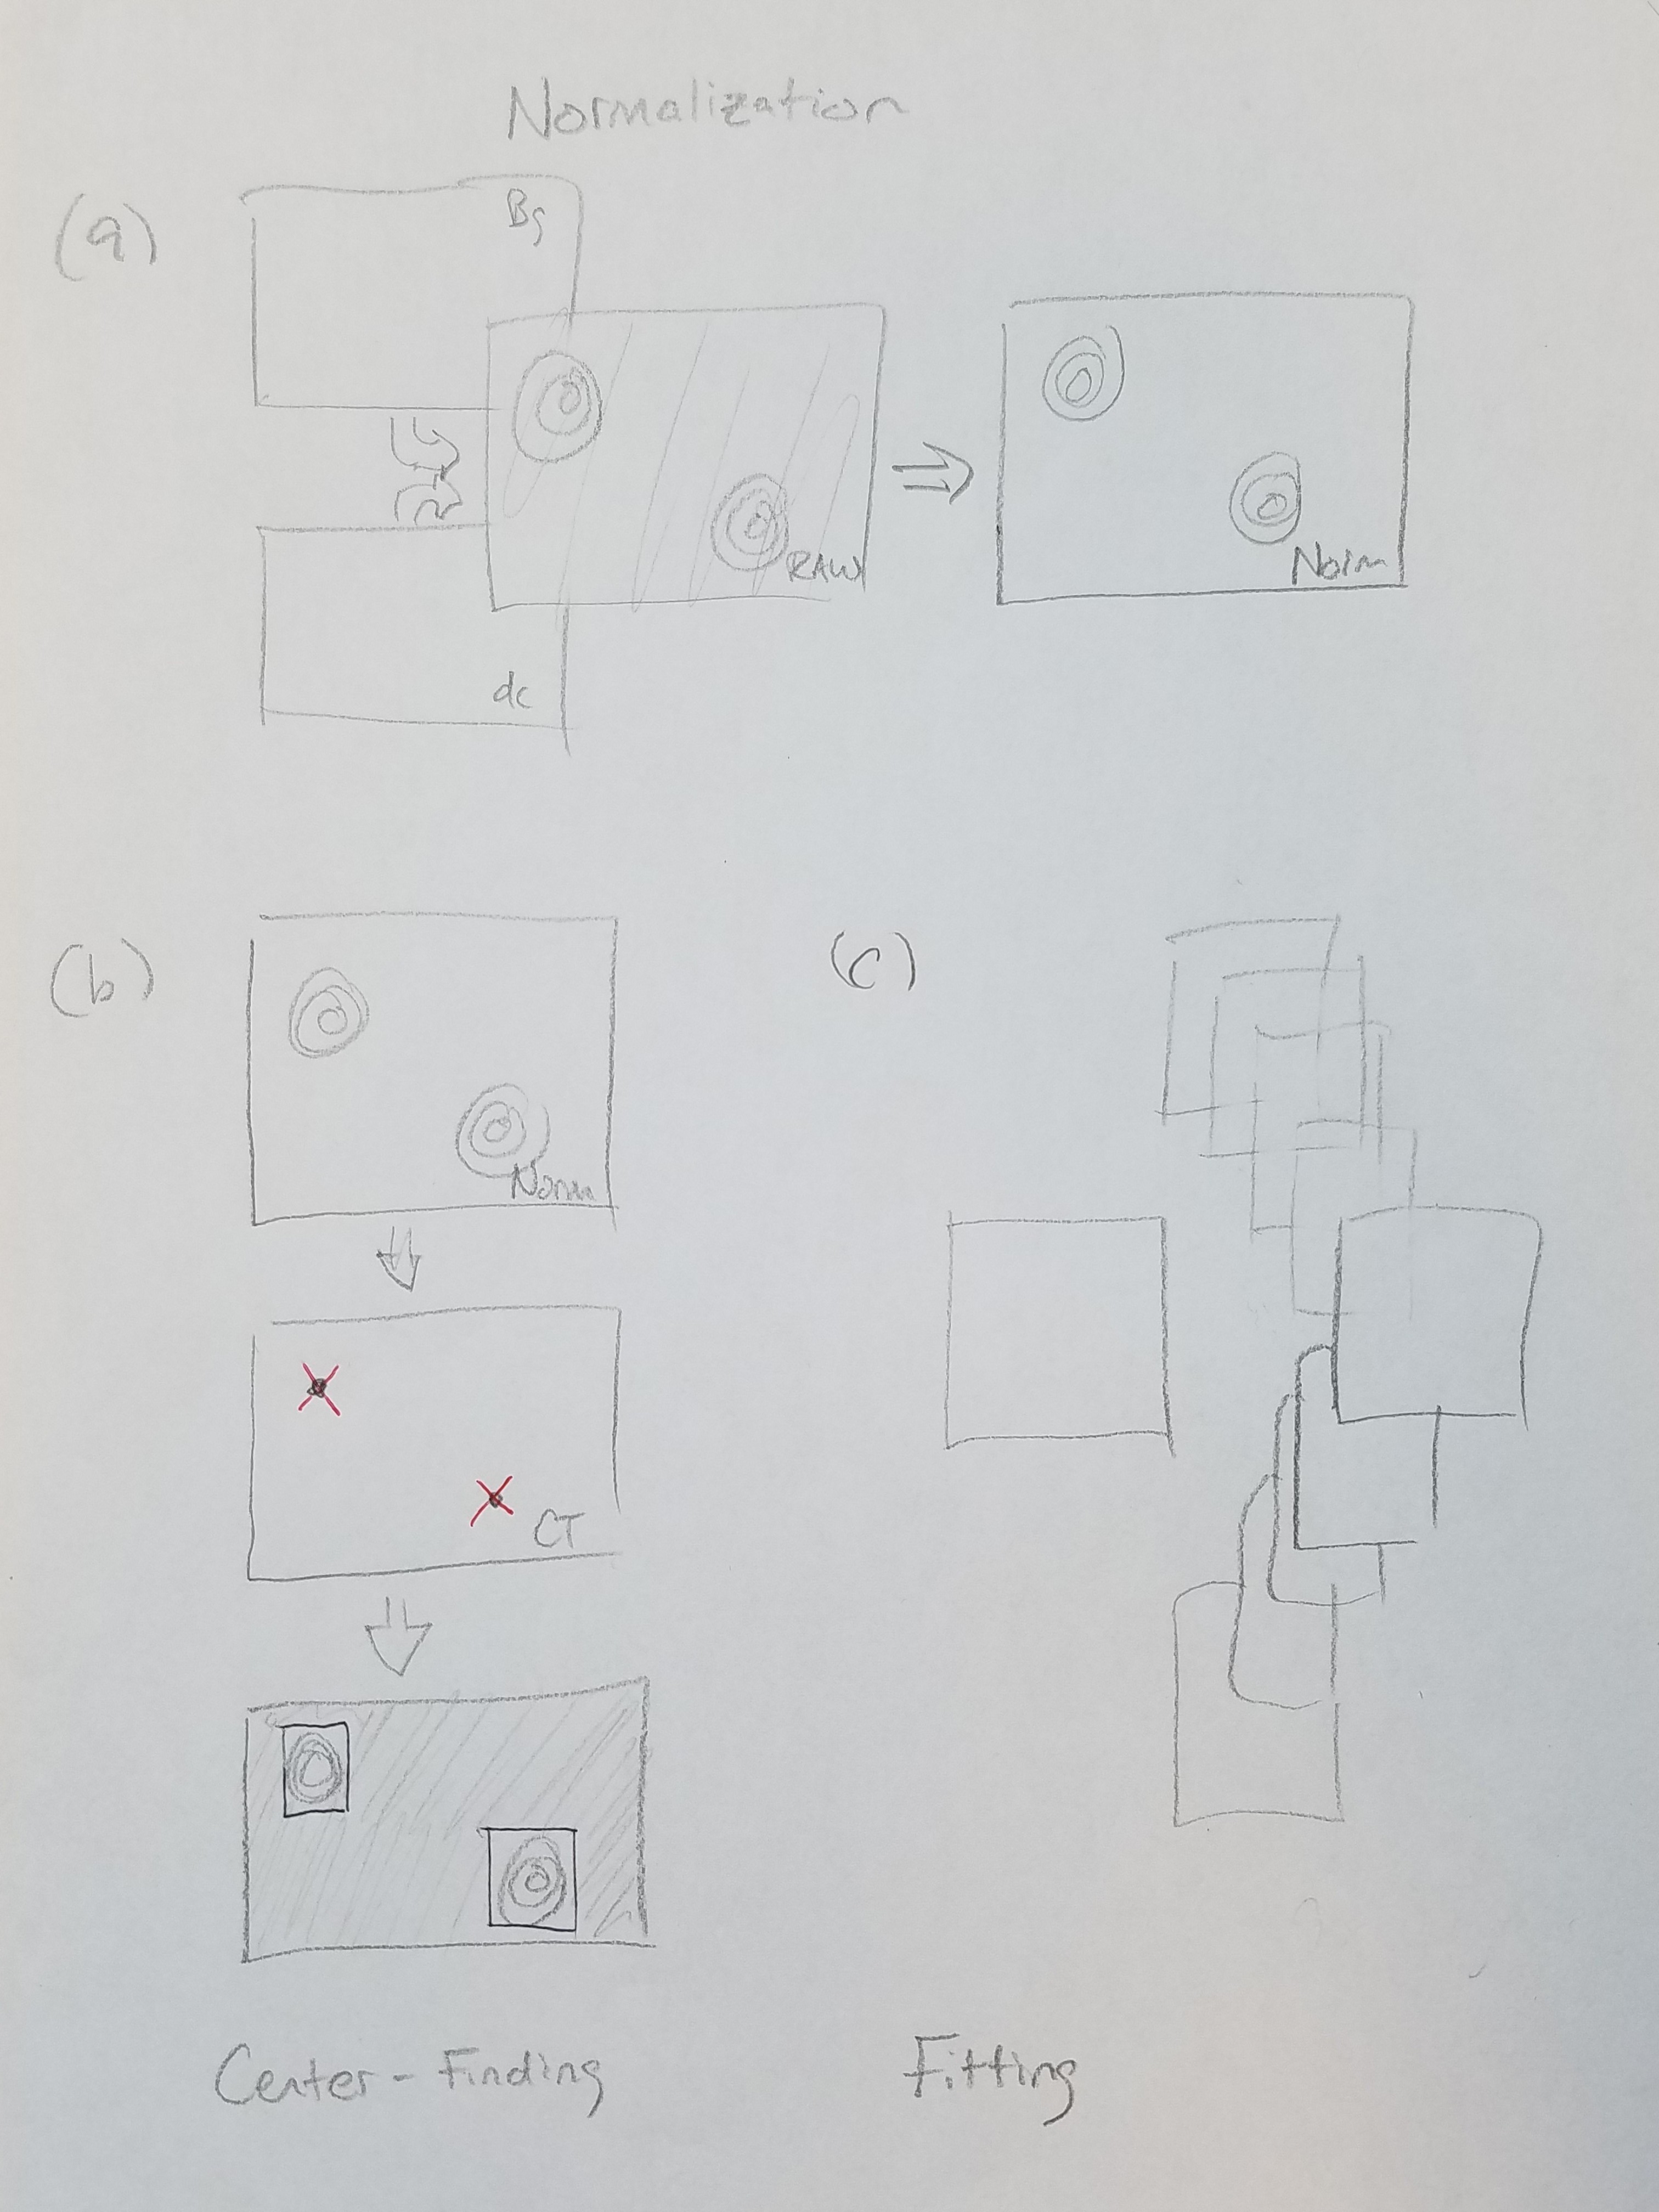 Normalization
(a)
Bg
RAW
Norm
dc
(b)
(c)
Norm
CT
Center-Finding
Fitting